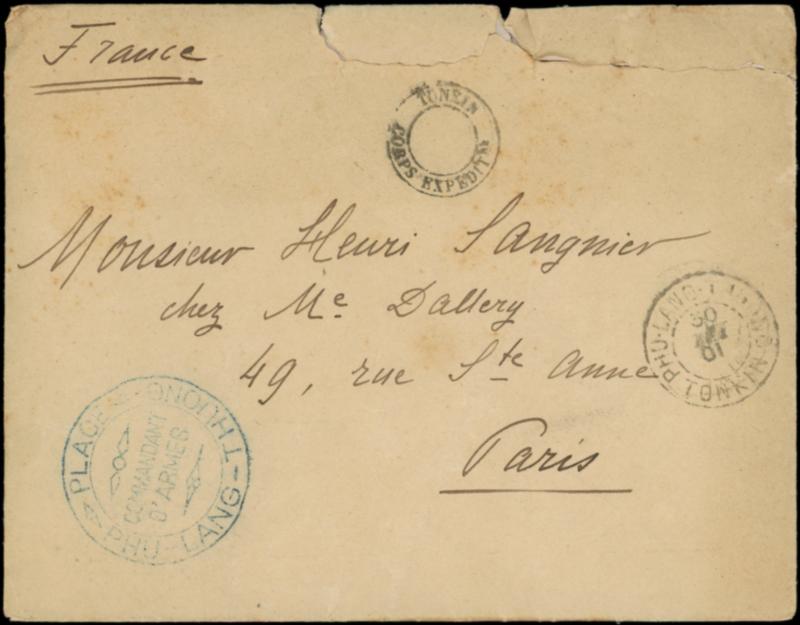 France
TONKIN
CORPS EXPEDITRE
Monsieur Henri Sangnier
chez Me Dallery
49, rue Ste Anne
Paris
PHU-LANG-THUONG
30
01
TONKIN
PLACE
PHU-LANG-THUONG
COMMANDANT
D'ARMES